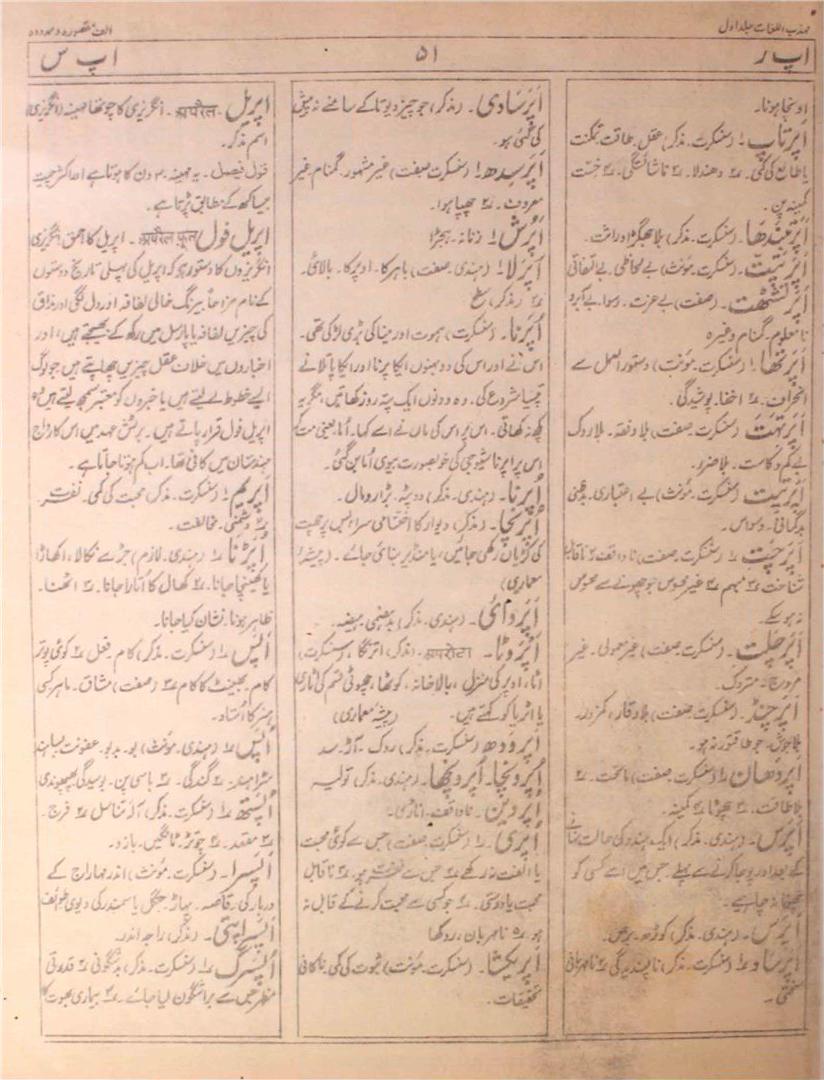 مہذب اللغات جلد اول
الف مقصورہ و ممدودہ
اپ ر
۵۱
اپ س
اونچا ہونا۔
اَپَرتاپ۔ (سنسکرت۔ مذکر) عقل۔ طاقت۔ تمکنت
یا طالع کی کمی۔ ۲؎ دھندلا۔ ۳؎ ناشائستگی۔ ۴؎ خست
کمینہ پن۔
(سنسکرت۔ مذکر) بلا جھگڑا وراثت۔
(سنسکرت۔ مؤنث) بے لحاظی۔ بے التفاتی
(صفت) بے عزت۔ رسوا۔ بے آبرو
نامعلوم۔ گمنام وغیرہ
(سنسکرت۔ مؤنث) دستور العمل سے
انحراف۔ ۲؎ اخفا۔ پوشیدگی۔
(سنسکرت۔ صفت) بلا وقفہ۔ بلا روک
بے کم و کاست۔ بلا ضرر۔
(سنسکرت۔ مؤنث) بے اعتباری۔ بدظنی
بدگمانی۔ وسواس۔
(سنسکرت۔ صفت) ناواقف ۲؎ ناقابل
شناخت ۳؎ مبہم ۴؎ غیر محسوس جو چھونے سے محسوس
نہ ہو سکے۔
اَپَرچلت۔ (سنسکرت۔ صفت) غیر معمولی۔ غیر
مروج۔ متروک۔
اَپَرچنڈ۔ (سنسکرت۔ صفت) بلا وقار، کمزور۔
بلا جوش۔ جو طاقتور نہ ہو۔
اَپَردھان ۱؎ (سنسکرت۔ صفت) ماتحت۔ ۲؎
بلا طاقت۔ ۳؎ چھوٹا ۴؎ کمینہ۔
اَپَرس۔ (ہندی۔ مذکر) ایک ہندو کی حالت نہانے
کے بعد اور پوجا کرنے سے پہلے۔ جس میں اسے کسی کو
چھونا نہ چاہیے۔
اَپرس۔ (ہندی۔ مذکر) کوڑھ۔ برص۔
اَپرساد ۱؎ (سنسکرت۔ مذکر) ناپسندیدگی ۲؎ نامہربانی
سختی۔
اَپرسادی۔ (مذکر) جو چیز دیوتا کے سامنے نہ پیش
کی گئی ہو۔
اَپرسدھ۔ (سنسکرت۔ صفت) غیر مشہور۔ گمنام غیر
معروف۔ ۲؎ چھپا ہوا۔
اَپُرش۔ زنانہ۔ ہیجڑا
اَپرلا۔ (ہندی۔ صفت) باہر کا۔ اوپر کا۔ بالائی۔
۲؎ (مذکر) سطح
اَپرنا۔ (سنسکرت) ہموت اور مینا کی بڑی لڑکی تھی۔
اس نے اور اس کی دو بہنوں ایکا پرنا اور ایکا پاٹلا نے
تپسیا شروع کی۔ وہ دونوں ایک پتہ روز کھاتیں، مگر یہ
کچھ نہ کھاتی۔ اس پر اس کی ماں نے اسے کہا۔ اُما۔ یعنی مت
اس پر اپرنا شیوجی کی خوبصورت بیوی اُما بن گئی۔
اُپرنا۔ (ہندی۔ مذکر) دوپٹہ۔ بڑا رومال۔
(مذکر) دیوار کا اختتامی سرا جس پر چھت
کی کڑیاں رکھی جائیں، یا منڈیر بنائی جائے۔ (پیشۂ
معماری)
(ہندی۔ مذکر) بدہضمی۔ ہیضہ۔
اَپروٹا۔ अपरोटा۔ (مذکر) اترنگا (سنسکرت)
اٹا، اوپر کی منزل، بالاخانہ، کوٹھا، چھوٹی قسم کی اٹاری
یا اٹریا کو کہتے ہیں۔ (پیشۂ معماری)
اَپرودھ (سنسکرت۔ مذکر) روک۔ آڑ۔ سد
اُپرونچا۔ اُپرونچھا۔ (ہندی۔ مذکر) تولیہ
اَپروین۔ ناواقف۔ اناڑی۔
اَپری۔ ۱؎ (سنسکرت۔ صفت) جس سے کوئی محبت
یا الفت نہ رکھے ۲؎ جس سے نفرت ہو۔ ۳؎ ناقابل
محبت یا دوستی۔ ۴؎ جو کسی سے محبت کرنے کے قابل نہ
ہو۔ ۵؎ نامہربان، روکھا
اَپریکشا۔ (سنسکرت۔ مؤنث) ثبوت کی کمی۔ ناکافی
تحقیقات۔
اپریل۔ अपरैल۔ انگریزی کا چوتھا مہینہ (انگریزی)
اسم مذکر۔
قول فیصل۔ یہ مہینہ ۳۰ دن کا ہوتا ہے اور اکثر چیت
بیساکھ کے مطابق پڑتا ہے۔
اپریل فول अपरैल फ़ूल۔ اپریل کا احمق۔ انگریزی
انگریزوں کا دستور ہے کہ اپریل کی پہلی تاریخ دوستوں
کے نام مزاحاً بیرنگ خالی لفافہ اور دل لگی اور مذاق
کی چیزیں لفافہ یا پارسل میں رکھ کے بھیجتے ہیں، اور
اخباروں میں خلاف عقل چیزیں چھاپتے ہیں۔ جو لوگ
ایسے خطوط لے لیتے ہیں یا خبروں کو معتبر سمجھ لیتے ہیں وہ
اپریل فول قرار پاتے ہیں۔ برٹش عہد میں اس کا رواج
ہندستان میں کافی تھا۔ اب کم ہوتا جاتا ہے۔
اَپریم۔ (سنسکرت۔ مذکر) محبت کی کمی۔ نفرت۔
۲؎ دشمنی۔ مخالفت۔
اُپڑنا ۱؎ (ہندی۔ لازم) جڑ سے نکالا، اکھاڑا
یا کھینچا جانا۔ ۲؎ کھال کا اتارا جانا۔ ۳؎ اٹھنا۔
ظاہر ہونا۔ نشان کیا جانا۔
اَپس ۱؎ (سنسکرت۔ مذکر) کام۔ فعل ۲؎ کوئی پوتر
کام۔ بھینٹ کا کام ۳؎ (صفت) مشاق۔ ماہر کسی
ہنر کا اُستاد۔
اُپس ۱؎ (ہندی۔ مؤنث) بو۔ بدبو۔ عفونت بساہند
سڑاہند۔ ۲؎ گندگی۔ ۳؎ باسی پن۔ بوسیدگی۔ پھپھوندی
اُپستھ ۱؎ (سنسکرت۔ مذکر) آلۂ تناسل ۲؎ فرج۔
۳؎ مقعد۔ ۴؎ چوتڑ۔ ٹانگیں۔ بازو۔
اَپسرا۔ (سنسکرت۔ مؤنث) اندر مہاراج کے
دربار کی رقاصہ۔ پہاڑ۔ جنگل یا سمندر کی دیوی طوائف
اَپسراپتی۔ (مذکر) راجہ اندر۔
اُپسرگ ۱؎ (سنسکرت۔ مذکر) بدشگونی ۲؎ قدرتی
مظہر جس سے برا شگون لیا جائے۔ ۳؎ بیماری بھوت کا